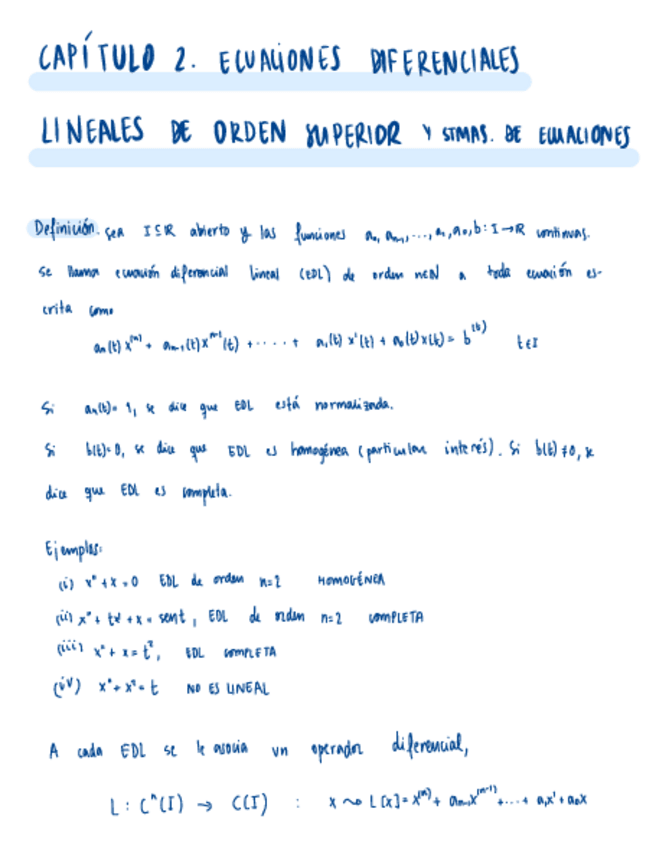 CAPÍTULO 2. ECUACIONES DIFERENCIALES
LINEALES DE ORDEN SUPERIOR Y STMAS. DE ECUACIONES
Definición. sea I⊆R abierto y las funciones aₙ, aₙ₋₁, ..., a₁, a₀, b: I→R continuas.
Se llama ecuación diferencial lineal (EDL) de orden n∈N a toda ecuación es-
crita como
aₙ(t) x⁽ⁿ⁾ + aₙ₋₁(t) xⁿ⁻¹(t) + ..... + a₁(t) x'(t) + a₀(t) x(t) = b(t) t∈I
Si aₙ(t) = 1, se dice que EDL está normalizada.
Si b(t) = 0, se dice que EDL es homogénea (particular interés). Si b(t) ≠ 0, se
dice que EDL es completa.
Ejemplos:
(i) x'' + x = 0 EDL de orden n=2 HOMOGÉNEA
(ii) x'' + tx' + x = sent, EDL de orden n=2 COMPLETA
(iii) x'' + x = t², EDL COMPLETA
(iv) x'' + x² = t NO ES LINEAL
A cada EDL se le asocia un operador diferencial,
L : Cⁿ(I) → C(I) : x ⤳ L[x] = x⁽ⁿ⁾ + aₙ₋₁x⁽ⁿ⁻¹⁾ + ... + a₁x' + a₀x